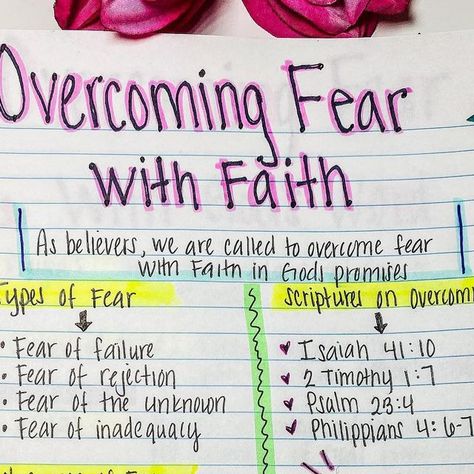 Overcoming Fear
with Faith
As believers, we are called to overcome fear
with Faith in Gods promises
Types of Fear
• Fear of failure
• Fear of rejection
• Fear of the unknown
• Fear of inadequacy
Scriptures on
♥ Isaiah 41:10
♥ 2 Timothy 1:7
♥ Psalm 23:4
♥ Philippians 4:6-7